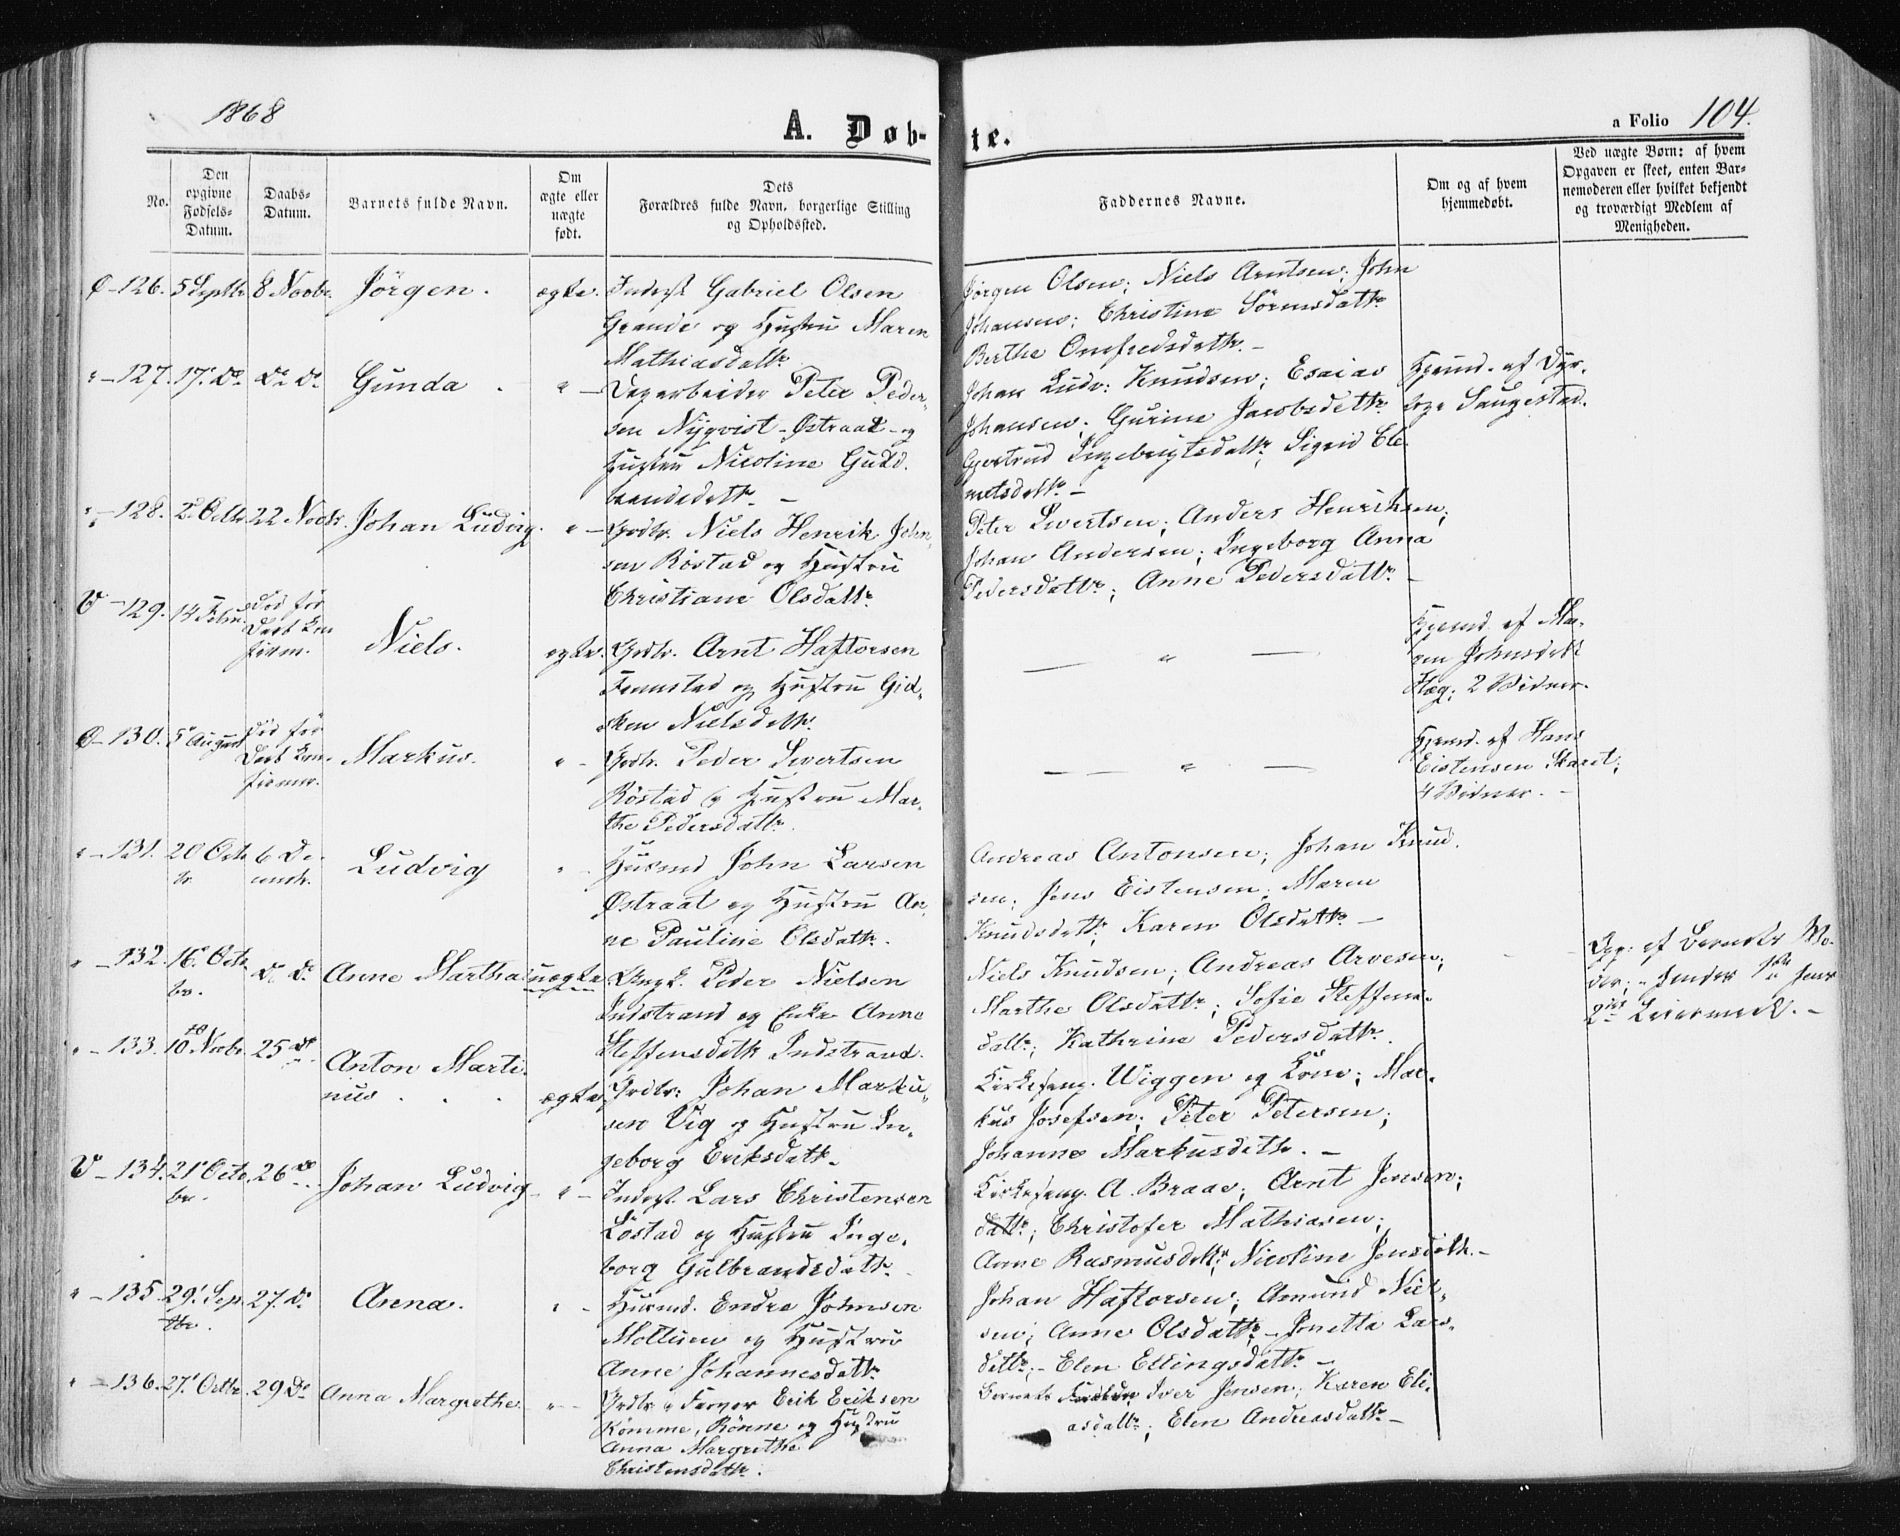 1868
A. Døb-
te.
a Folio 104.
No.
Den
opgivne
Fødsels-
Datum.
Daabs-
Datum.
Barnets fulde Navn.
Om
ægte eller
uægte
født.
Dets
Forældres fulde Navn, borgerlige Stilling
og Opholdssted.
Faddernes Navne.
Om og af hvem
hjemmedøbt.
Ved uægte Børn: af hvem
Opgaven er skeet, enten Bar-
nemoderen eller hvilket bekjendt
og troværdigt Medlem af
Menigheden.
Ø - 126. 5 Septbr 8 Novbr. Jörgen. ægte. Inderst Gabriel Olsen
Grande og Hustru Maren
Mathiasdattr
Jörgen Olsen; Niels Arntsen; John
Johansen; Christine Sörensdattr
Berthe Onefredsdattr. -
" - 127. 17. Do. Do Do Gunda. " - Veyarbeider Peter Peder-
sen Nyqvist - Østraat - og
Hustru Nicoline Guld-
brandsdattr -
Johan Ludv: Knudsen; Esaias
Johansen; Gurine Jacobsdattr
Gjertrud Ingebrigtsdattr; Sigrid Ele-
metsdattr -
Hjemd. af Dyr-
læge Saugestad.
" - 128. 2. Octbr 22 Novbr. Johan Ludvig. " - Grdbr. Niels Henrik John-
sen Röstad og Hustru
Christiane Olsdattr
Peter Sivertsen; Anders Henriksen;
Johan Andersen; Ingeborg Anna
Pedersdattr; Anne Pedersdattr -
V - 129. 14 Febru. Död før
Daab kon
firm. Niels. ægte. Grdbr. Arnt Haftorsen
og Hustru Gid-
sken Nielsdattr.
— " —
Hjemd. af Ma-
ren Johnsdatt
Hæg; 2 Vidner.
Ø - 130. 5 August Död før
Daab kon-
firmer. Markus. " - Grdbr. Peder Sivertsen
Röstad og Hustru Mar-
the Pedersdattr.
— " —
Hjemd. af Hans
Eistensen Skaret;
4 Vidner. -
" - 131. 20 Octo
br. 6 De-
cembr. Ludvig " - Husmd John Larsen
Østraat og Hustru An-
ne Pauline Olsdattr.
Andreas Antonsen; Johan Knud-
sen; Jens Eistensen; Maren
Knudsdattr; Karen Olsdattr -
" - 132. 16. Octo
br. Do Do Anne Martha uægte Ungk. Peder Nielsen
Indstrand og Enke Anne
Steffensdattr Indstrand.
Niels Knudsen; Andreas Arvesen;
Marthe Olsdattr; Sofie Steffens-
dattr; Kathrine Pedersdattr.
Opg: af Barnets Mo-
der; hendes 1ste hans
2det Leiermaal. -
" - 133. 10 Novbr. 25 do Anton Marti-
nus. ægte. Grdbr: Johan Marku-
sen Vig og Hustru In-
geborg Eriksdattr.
Kirkesang. Wiggen og Kone; Mar-
kus Josefsen; Peter Petersen;
Johanne Markusdattr. -
V - 134. 21 Octo
br. 26 do. Johan Ludvig - " - Inderst. Lars Christensen
Löstad og Hustru Inge-
borg Gulbrandsdattr.
Kirkesang. A. Braae; Arnt Jensen;
dattr; Christofer Mathiasen;
Anne Rasmusdattr, Nicoline Jensdattr. -
" - 135. 29. Sep
tbr. 27. Do Anna. " - Husmd. Endre Johnsen
og Hustru
Anne Johannesdattr
Johan Haftorsen; Amund Niel-
sen; Anne Olsdattr - Jonetta Lars-
dattr; - Elen Ellingsdattr -
" - 136. 27. Octbr. 29 Do Anna Margrethe. " - Grdbr & Farver Erik Eriksen
Römme, Rönne og Hustru
Anna Margrethe
Christensdattr.
Barnets Iver Jensen; Karen Eli-
asdattr; Elen Andreasdattr -